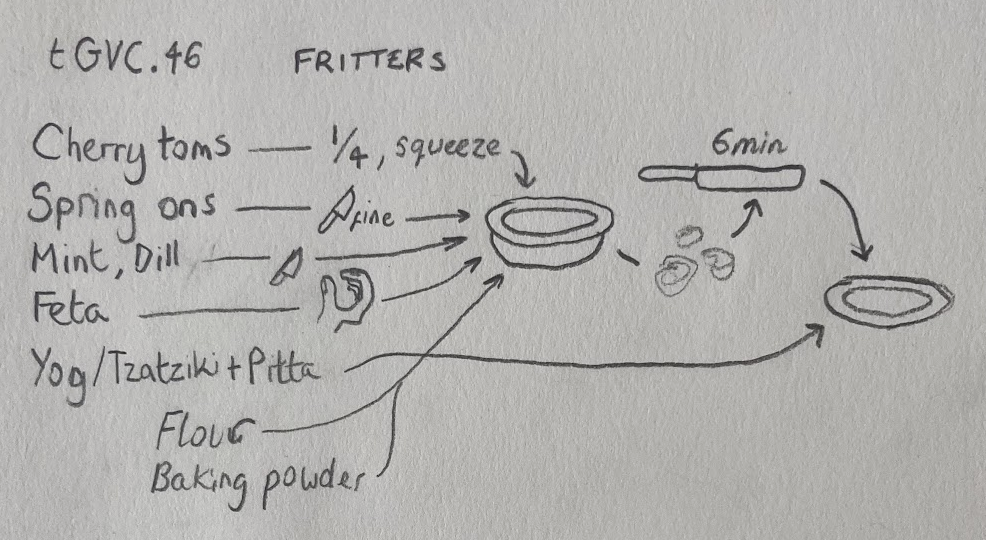 tGVC.46 FRITTERS
Cherry toms — 1/4, squeeze
6min
Spring ons — fine
Mint, Dill
Feta
Yog/Tzatziki + Pitta
Flour
Baking powder